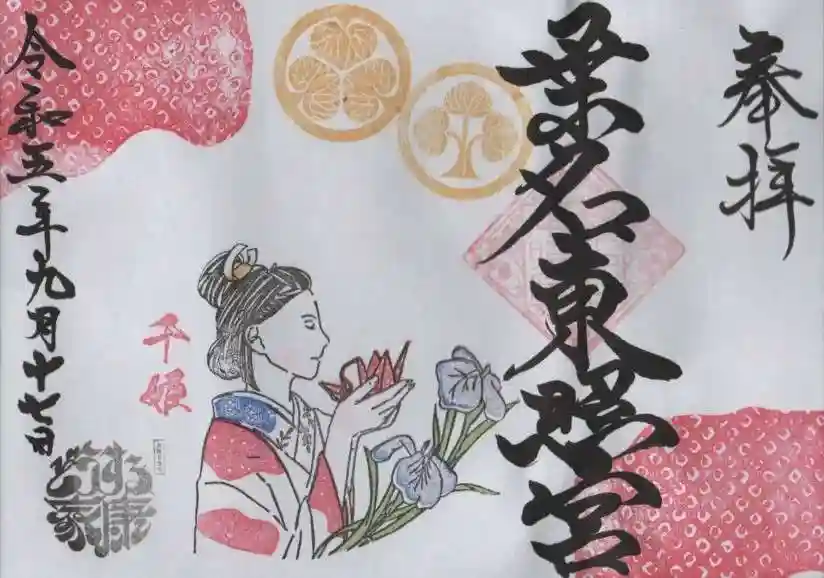 奉拝
桑名東照宮
千姫
令和五年九月十七日
どうする家康